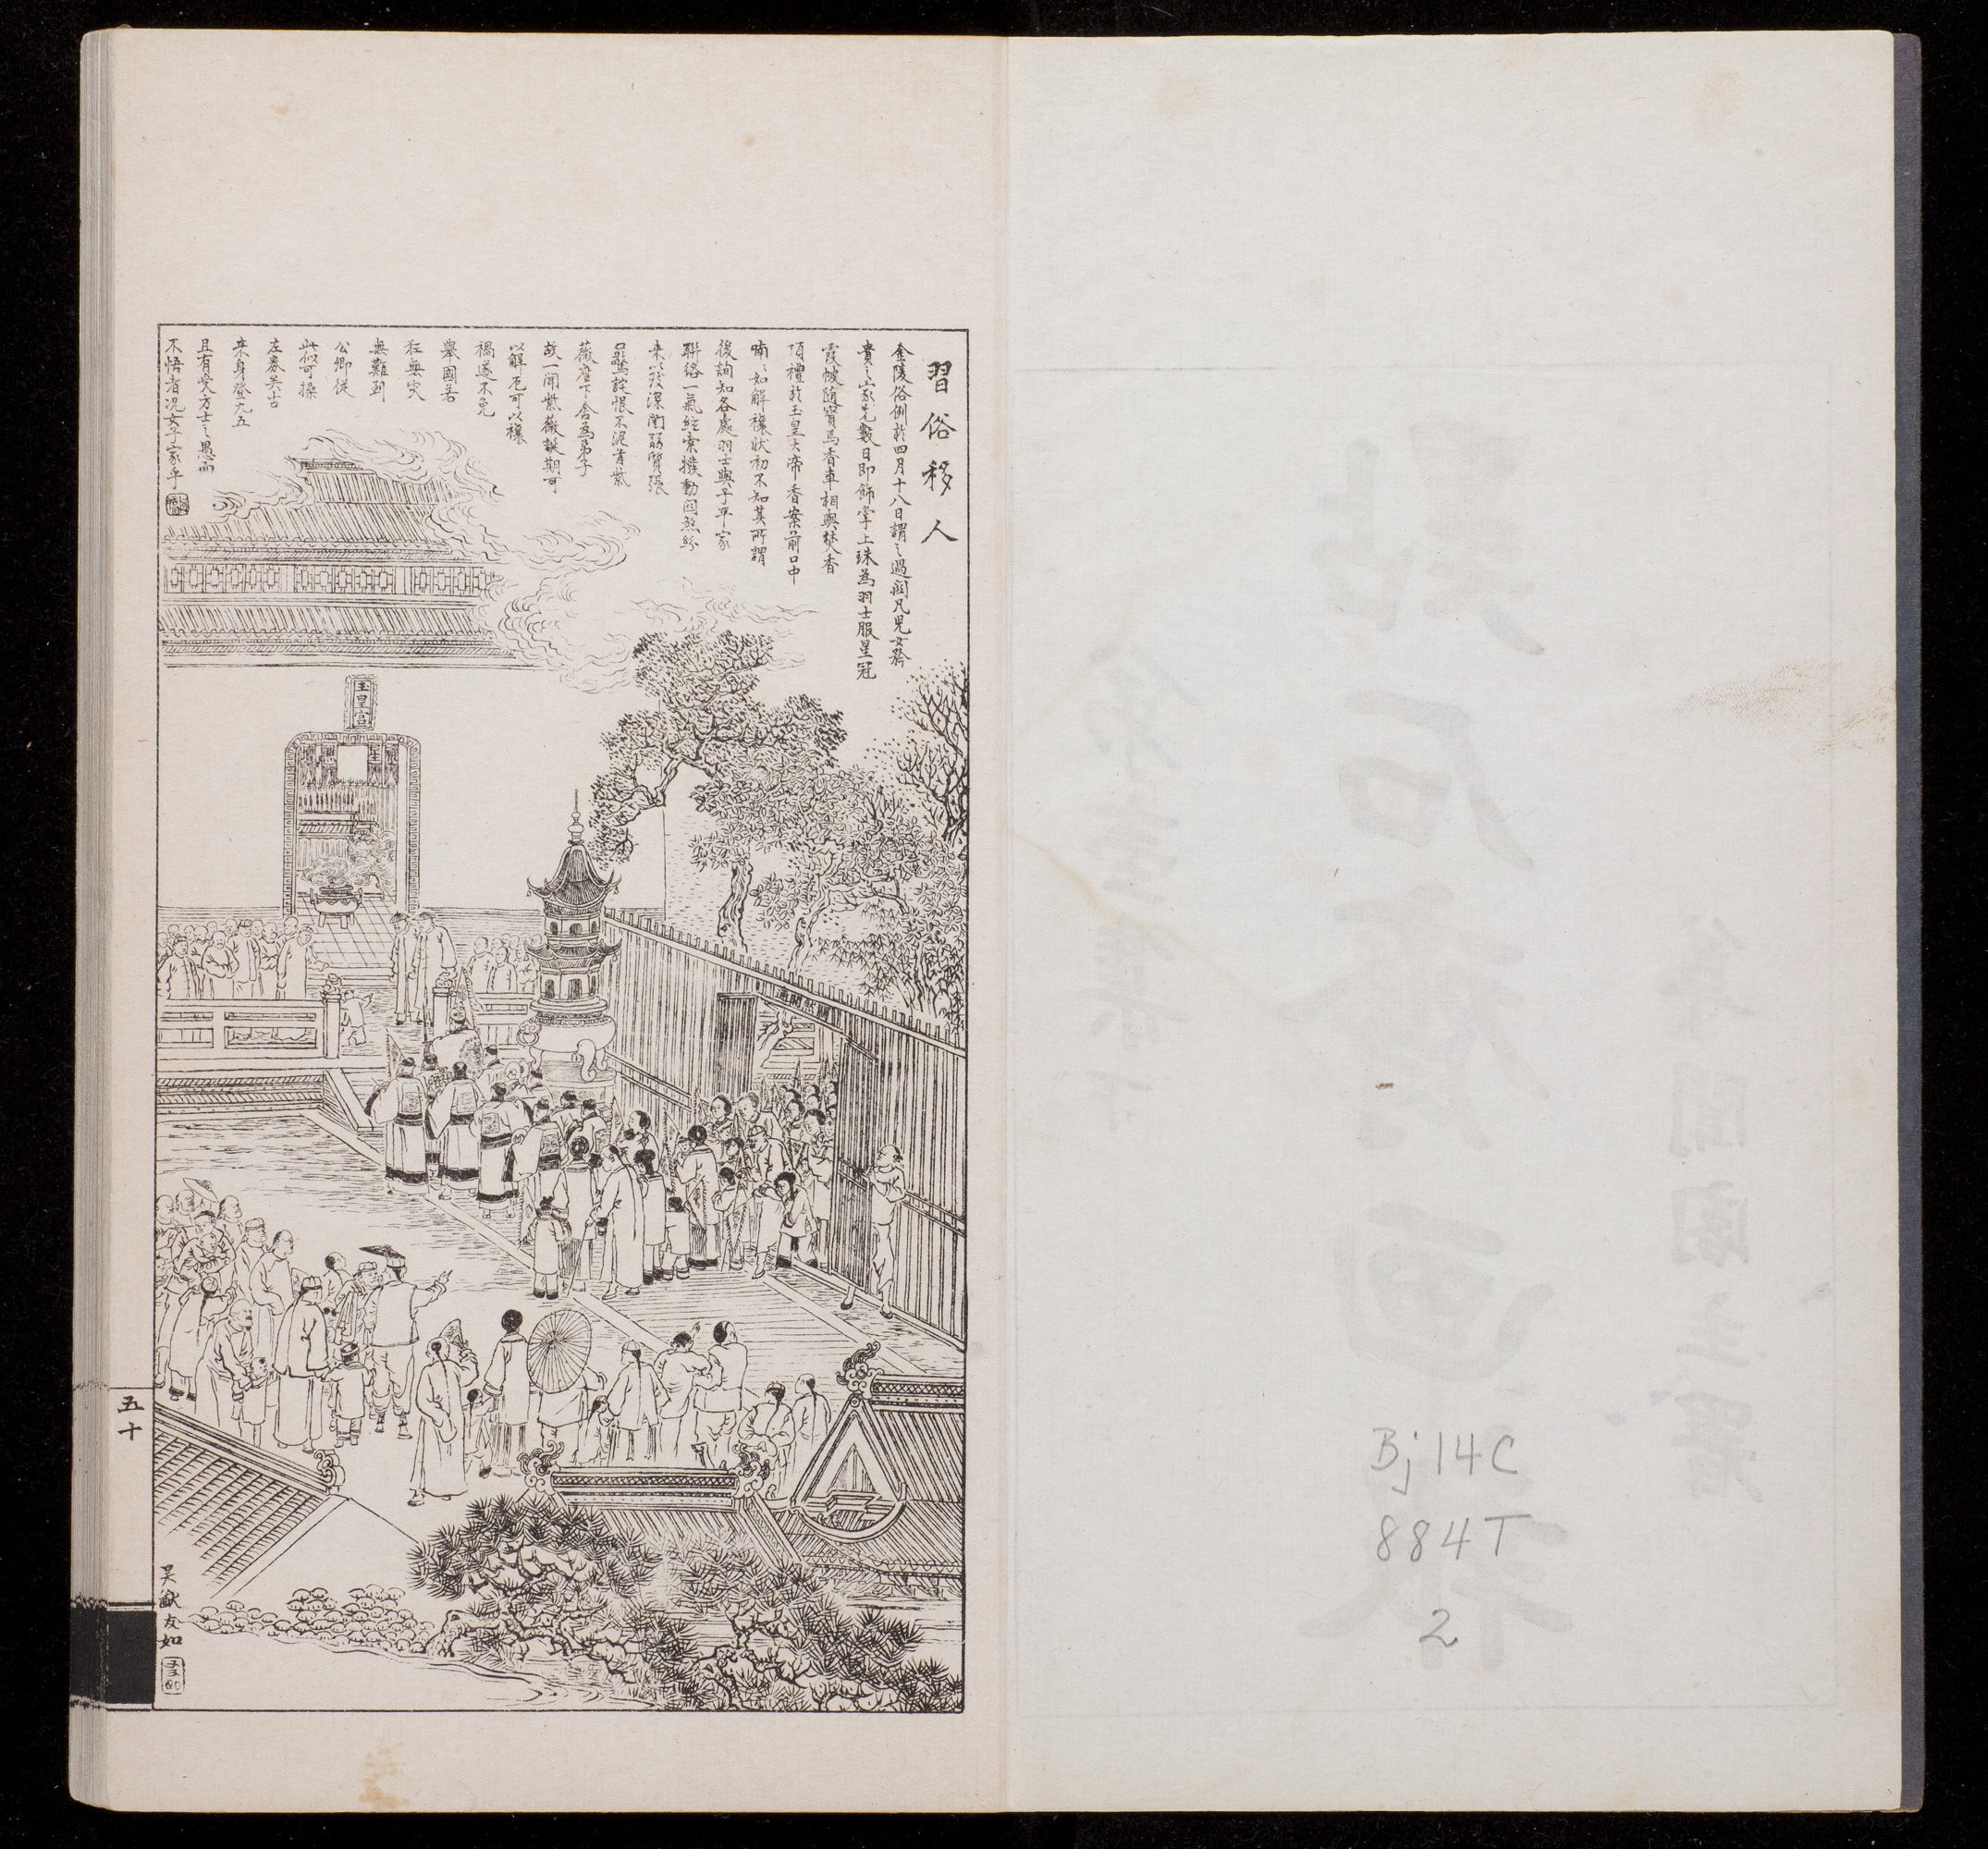 習俗移人
金陵俗例於四月十八日謂之過關凡兒女齊
貴之家先數日即飾掌上珠為羽士服星冠
霞帔隨寶馬香車相與焚香
頂禮於玉皇大帝香案前口中
喃喃如解禳狀初不知其所謂
後詢知各處羽士與子平家
聯絡一氣經索撥動關煞紛
來以致深閨弱質張
口驚詫恨不泥首紫
薇座下舍為弟子
故一聞紫薇誕期可
以解厄可以禳
禍遂不免
舉國若
狂無災
無難到
公卿從
此似可操
左券矣古
來身登九五
且有受方士之愚而
不悟者況女子家乎
玉皇宮
五十
吳猷友如
Bj 14C
884T
2